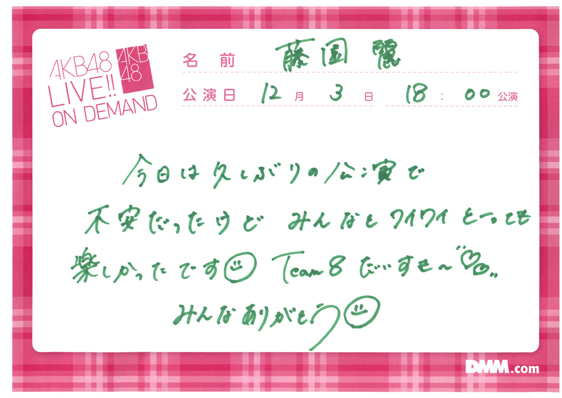 AKB48
LIVE!!
ON DEMAND
AKB
48
名前 藤園 麗
公演日 12月 3日 18:00公演
今日は久しぶりの公演で
不安だったけど みんなとワイワイとっても
楽しかったです Team8 だいすき〜
みんなありがとう
DMM.com